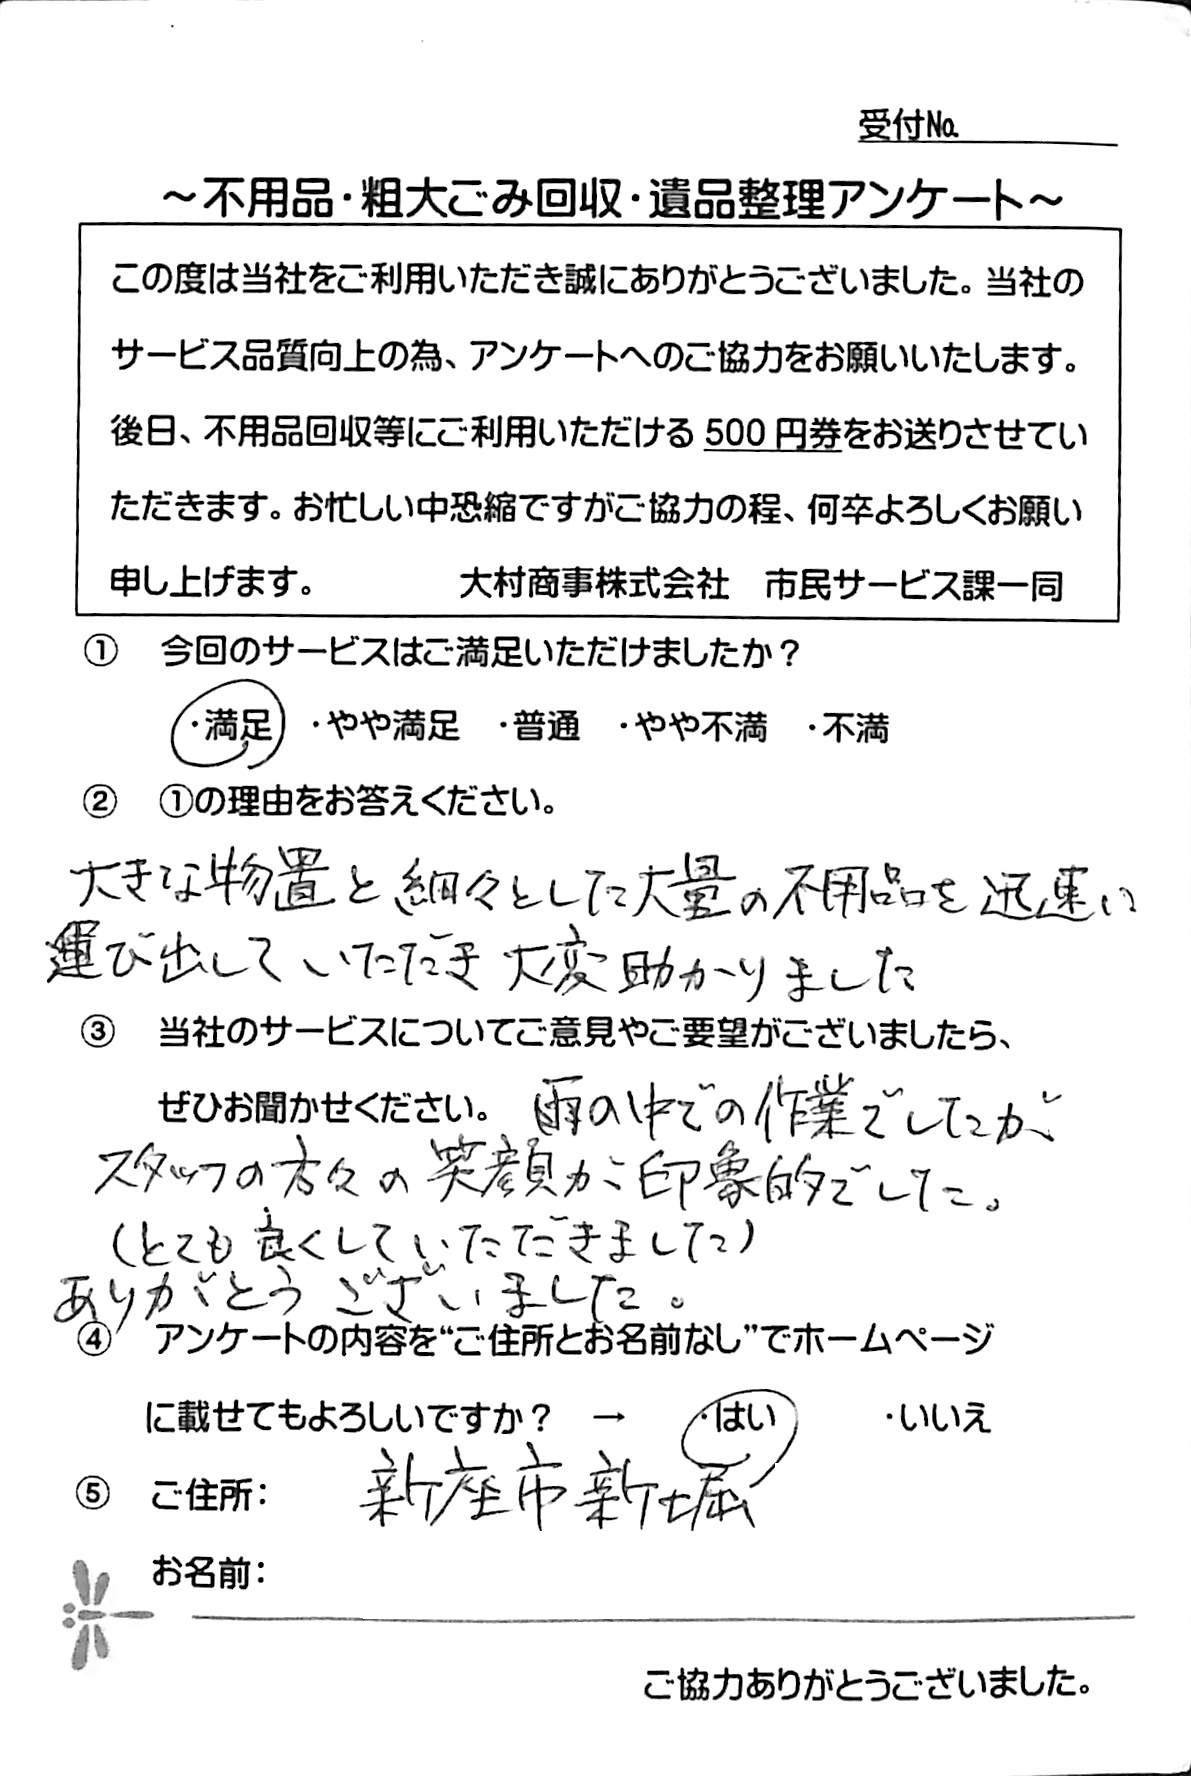 受付No.
～不用品・粗大ごみ回収・遺品整理アンケート～
この度は当社をご利用いただき誠にありがとうございました。当社の
サービス品質向上の為、アンケートへのご協力をお願いいたします。
後日、不用品回収等にご利用いただける 500 円券をお送りさせてい
ただきます。お忙しい中恐縮ですがご協力の程、何卒よろしくお願い
申し上げます。 大村商事株式会社 市民サービス課一同
① 今回のサービスはご満足いただけましたか？
・満足 ・やや満足 ・普通 ・やや不満 ・不満
② ①の理由をお答えください。
大きな物置と細々とした大量の不用品を迅速に
運び出していただき大変助かりました
③ 当社のサービスについてご意見やご要望がございましたら、
ぜひお聞かせください。 雨の中での作業でしたが、
スタッフの方々の笑顔が印象的でした。
(とても良くしていただきました)
ありがとうございました。
④ アンケートの内容を“ご住所とお名前なし”でホームページ
に載せてもよろしいですか？ → ・はい ・いいえ
⑤ ご住所： 新座市新堀
お名前：
ご協力ありがとうございました。